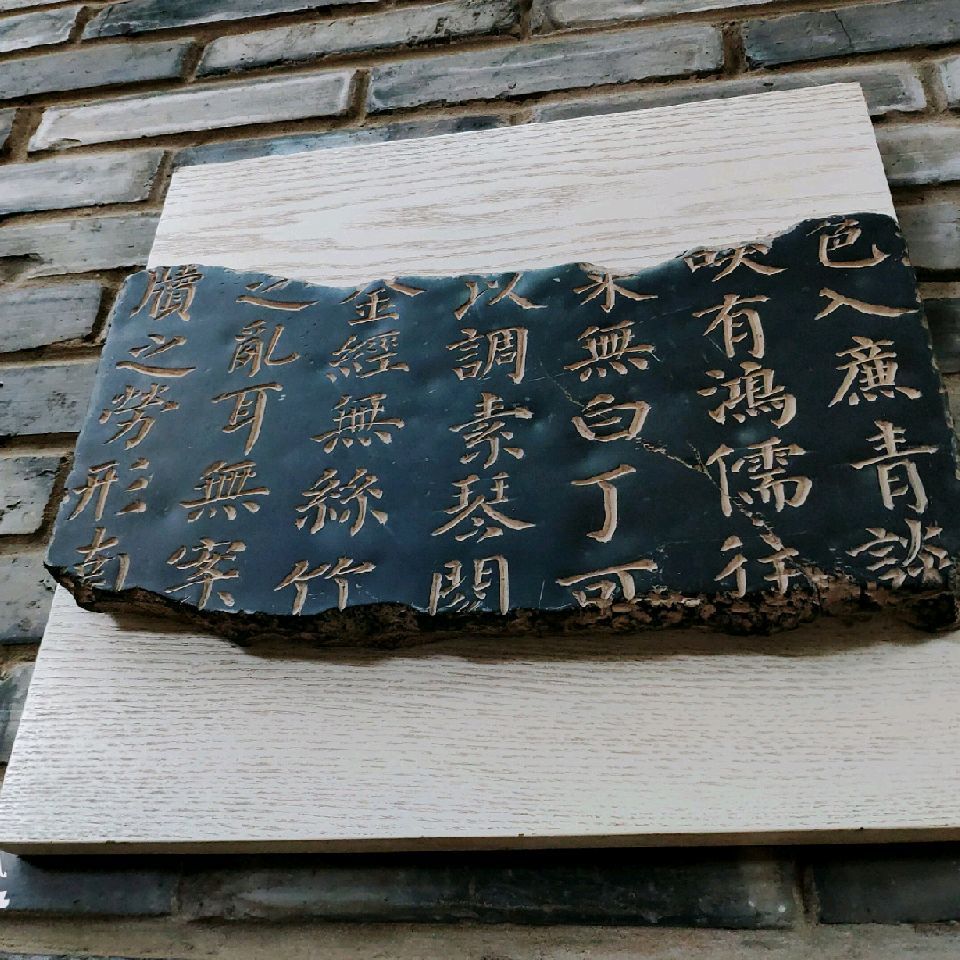 色入廉青談
咲有鴻儒往
来無白丁可
以調素琴閱
金經無絲竹
之亂耳無案
牘之勞形南